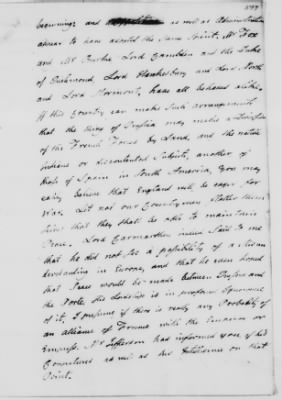 beginnings and as well as Administration
appear to have adopted the same Spirit. Mr Fox
and Mr Burke Lord Camden and the Duke
of Richmond, Lord Hawkesbury and Lord North
and Lord Stormont, have all behaved alike.
If this Country can make such arrangements
that the King of Prussia may make a Diversion
of the French Force by Land, and the native
indians or discontented Subjects, another of
that of Spain in South America, You may
easily believe that England will be eager for
War. Let not our Countrymen flatter them
selves that they shall be able to maintain
Peace. Lord Carmarthen indeed said to me
that he did not see a possibility of a
in Europe, and that he even hoped
that Peace would be made between Russia and
the Porte. His Lordship is in profound Ignorance
of it, I presume if there is really any Probability of
an alliance of France with the Emperor or
Empress. Mr Jefferson has informed you of his
Conjectures as well as his Intelligence on that
Point.